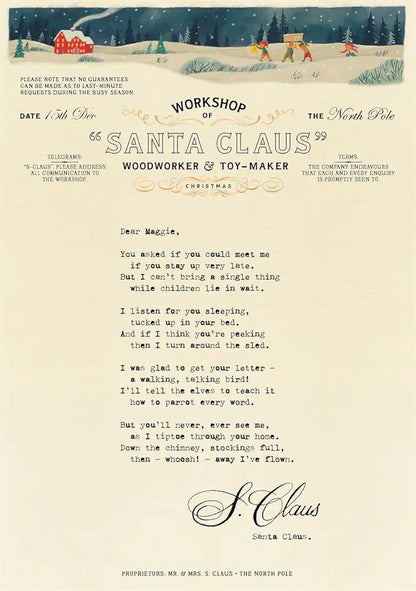 PLEASE NOTE THAT NO GUARANTEES
CAN BE MADE AS TO LAST-MINUTE
REQUESTS DURING THE BUSY SEASON.
DATE 15th Dec
WORKSHOP
OF
THE North Pole
“SANTA CLAUS”
WOODWORKER & TOY-MAKER
CHRISTMAS
TELEGRAMS:
"S-CLAUS". PLEASE ADDRESS
ALL COMMUNICATION TO
THE WORKSHOP.
TERMS:
THE COMPANY ENDEAVOURS
THAT EACH AND EVERY ENQUIRY
IS PROMPTLY SEEN TO.
Dear Maggie,
You asked if you could meet me
if you stay up very late.
But I can't bring a single thing
while children lie in wait.
I listen for you sleeping,
tucked up in your bed.
And if I think you're peeking
then I turn around the sled.
I was glad to get your letter –
a walking, talking bird!
I'll tell the elves to teach it
how to parrot every word.
But you'll never, ever see me,
as I tiptoe through your home.
Down the chimney, stockings full,
then – whoosh! – away I've flown.
S. Claus
Santa Claus.
PROPRIETORS: MR. & MRS. S. CLAUS • THE NORTH POLE